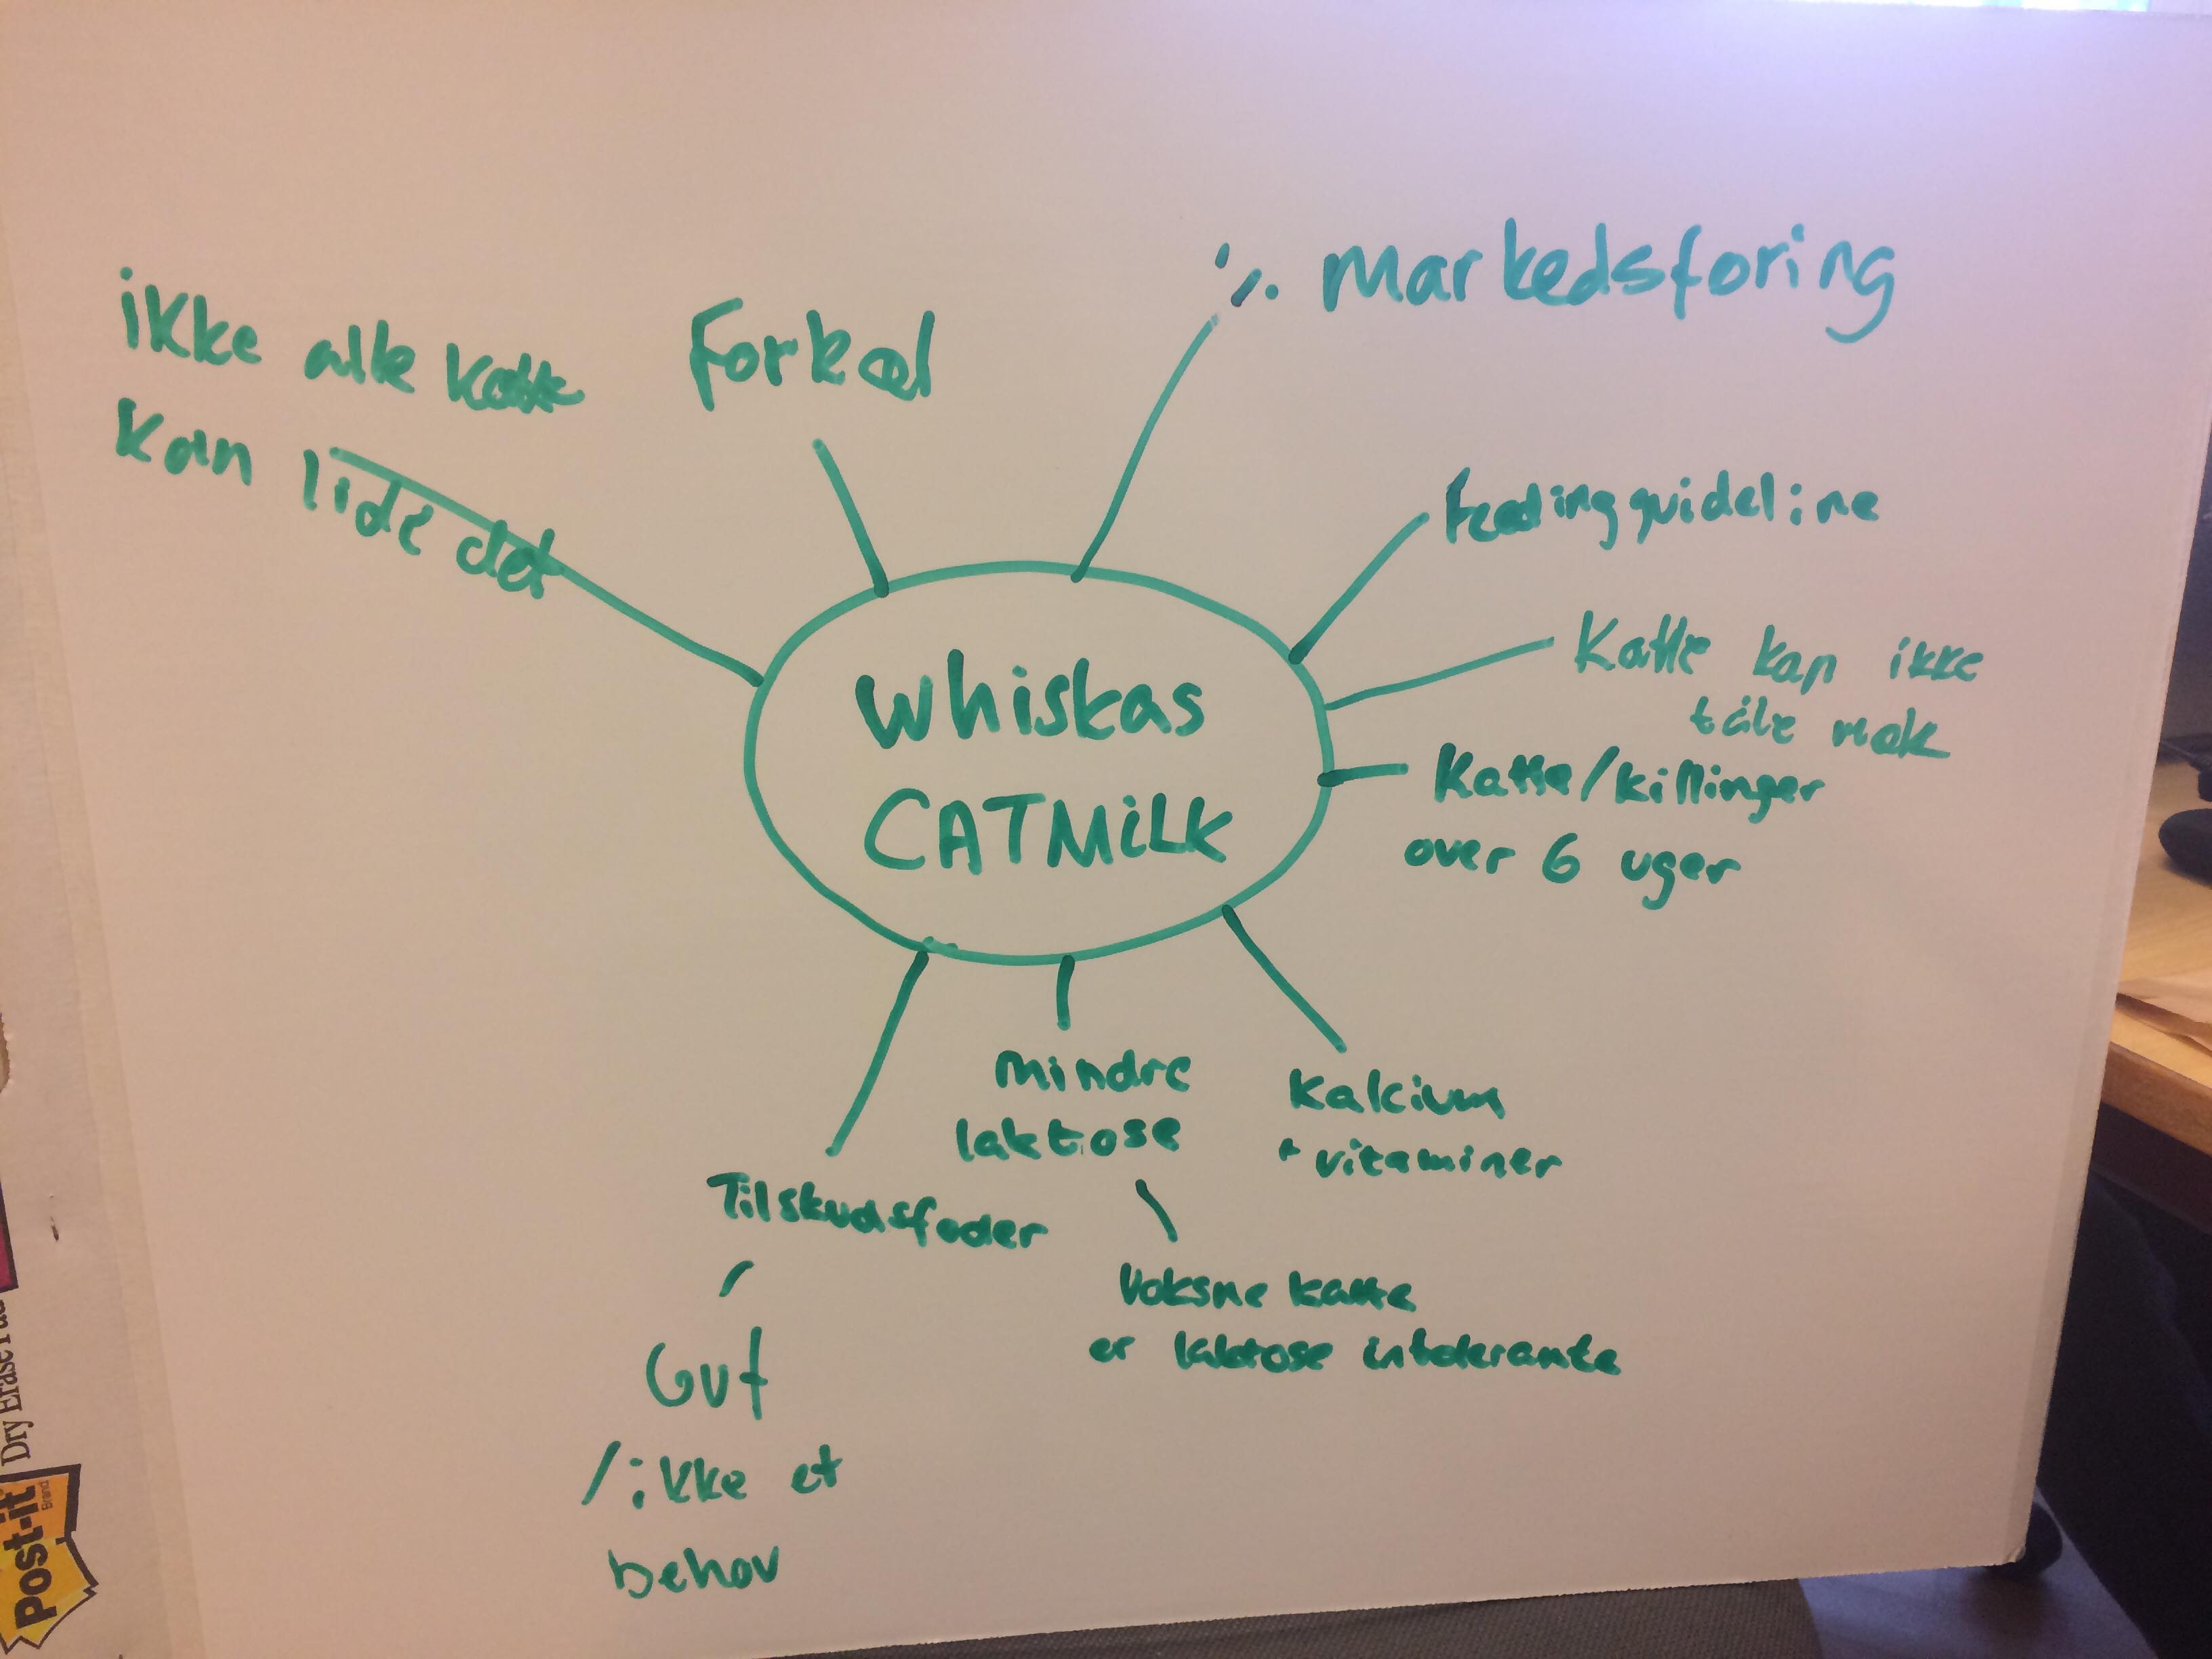 ikke alle katte
kan lide det
Forkæl
./. Markedsforing
Feedingguideline
Katte kan ikke
tåle mælk
Katte/killinger
over 6 uger
Whiskas
CATMiLK
Kalcium
+ vitaminer
mindre
laktose
Voksne katte
er laktose intolerante
Tilskudsfoder
Guf
/ikke et
behov
Dry Erase
Post-it
Brand